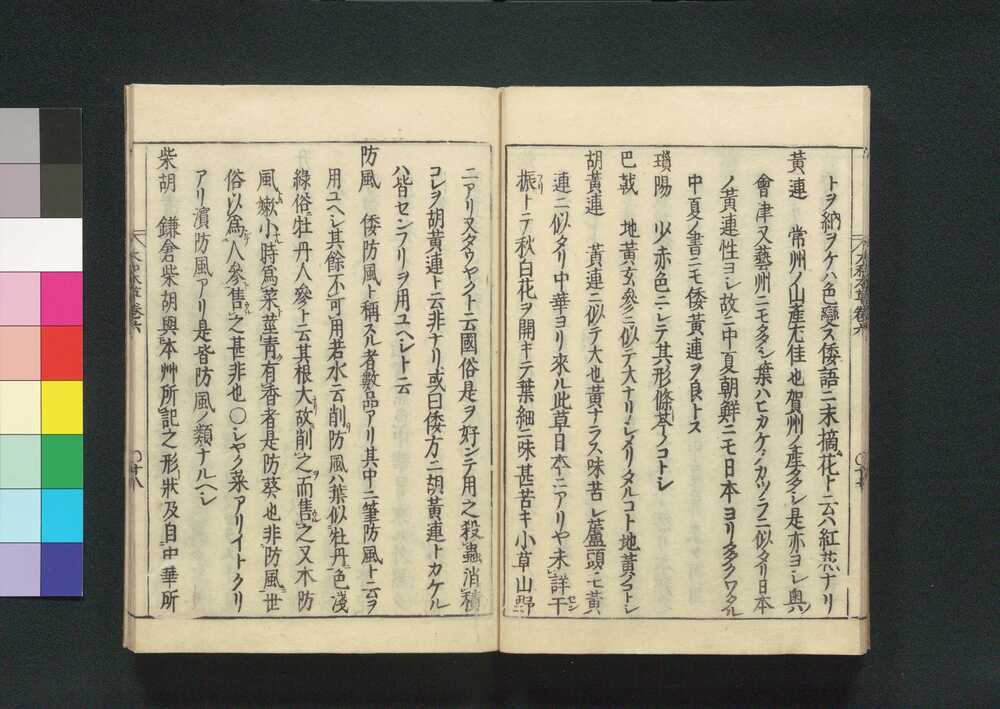 トヲ納ヲケハ色變ス倭語ニ末摘花ト云ハ紅花ナリ
黃連 常州ノ山產尤佳也賀州ノ產多シ是亦ヨシ奧
會津又藝州ニモ多シ葉ハヒカケノカツラニ似タリ日本
ノ黃連性ヨシ故ニ中夏朝鮮ニモ日本ヨリ多クワタル
中夏ノ書ニモ倭黃連ヲ良トス
瑣陽 少赤色ニシテ其形條芩ノコトシ
巴戟 地黃玄參ニ似テ大ナリシメリタルコト地黃ノコトシ
胡黃連 黃連ニ似テ大也黃ナラス味苦シ蘆頭モ黃
連ニ似タリ中華ヨリ來ル此草日本ニアリヤ未詳千
振トテ秋白花ヲ開キテ葉細ニ味甚苦キ小草山野
ニアリ又タウヤクト云國俗是ヲ好ンテ用之殺蟲消積
コレヲ胡黃連ト云非ナリ或曰倭方ニ胡黃連トカケル
ハ皆センフリヲ用ユヘシト云
防風 倭防風ト稱スル者數品アリ其中ニ筆防風ト云ヲ
用ユヘシ其餘不可用若水云削防風ハ葉似牡丹色淺
綠俗牡丹人參ト云其根大故削之而售之又木防
風嫩小時爲菜莖靑有香者是防葵也非防風世
俗以爲人參售之甚非也〇シヤク菜アリイトクリ
アリ濱防風アリ是皆防風ノ類ナルヘシ
柴胡 鎌倉柴胡與本艸所記之形狀及自中華所